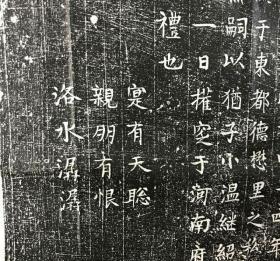 于東都德懋里之
嗣以猶子小温継紹
一日權窆于河南府
禮也
寔有天聡
親朋有恨
洛水潺潺